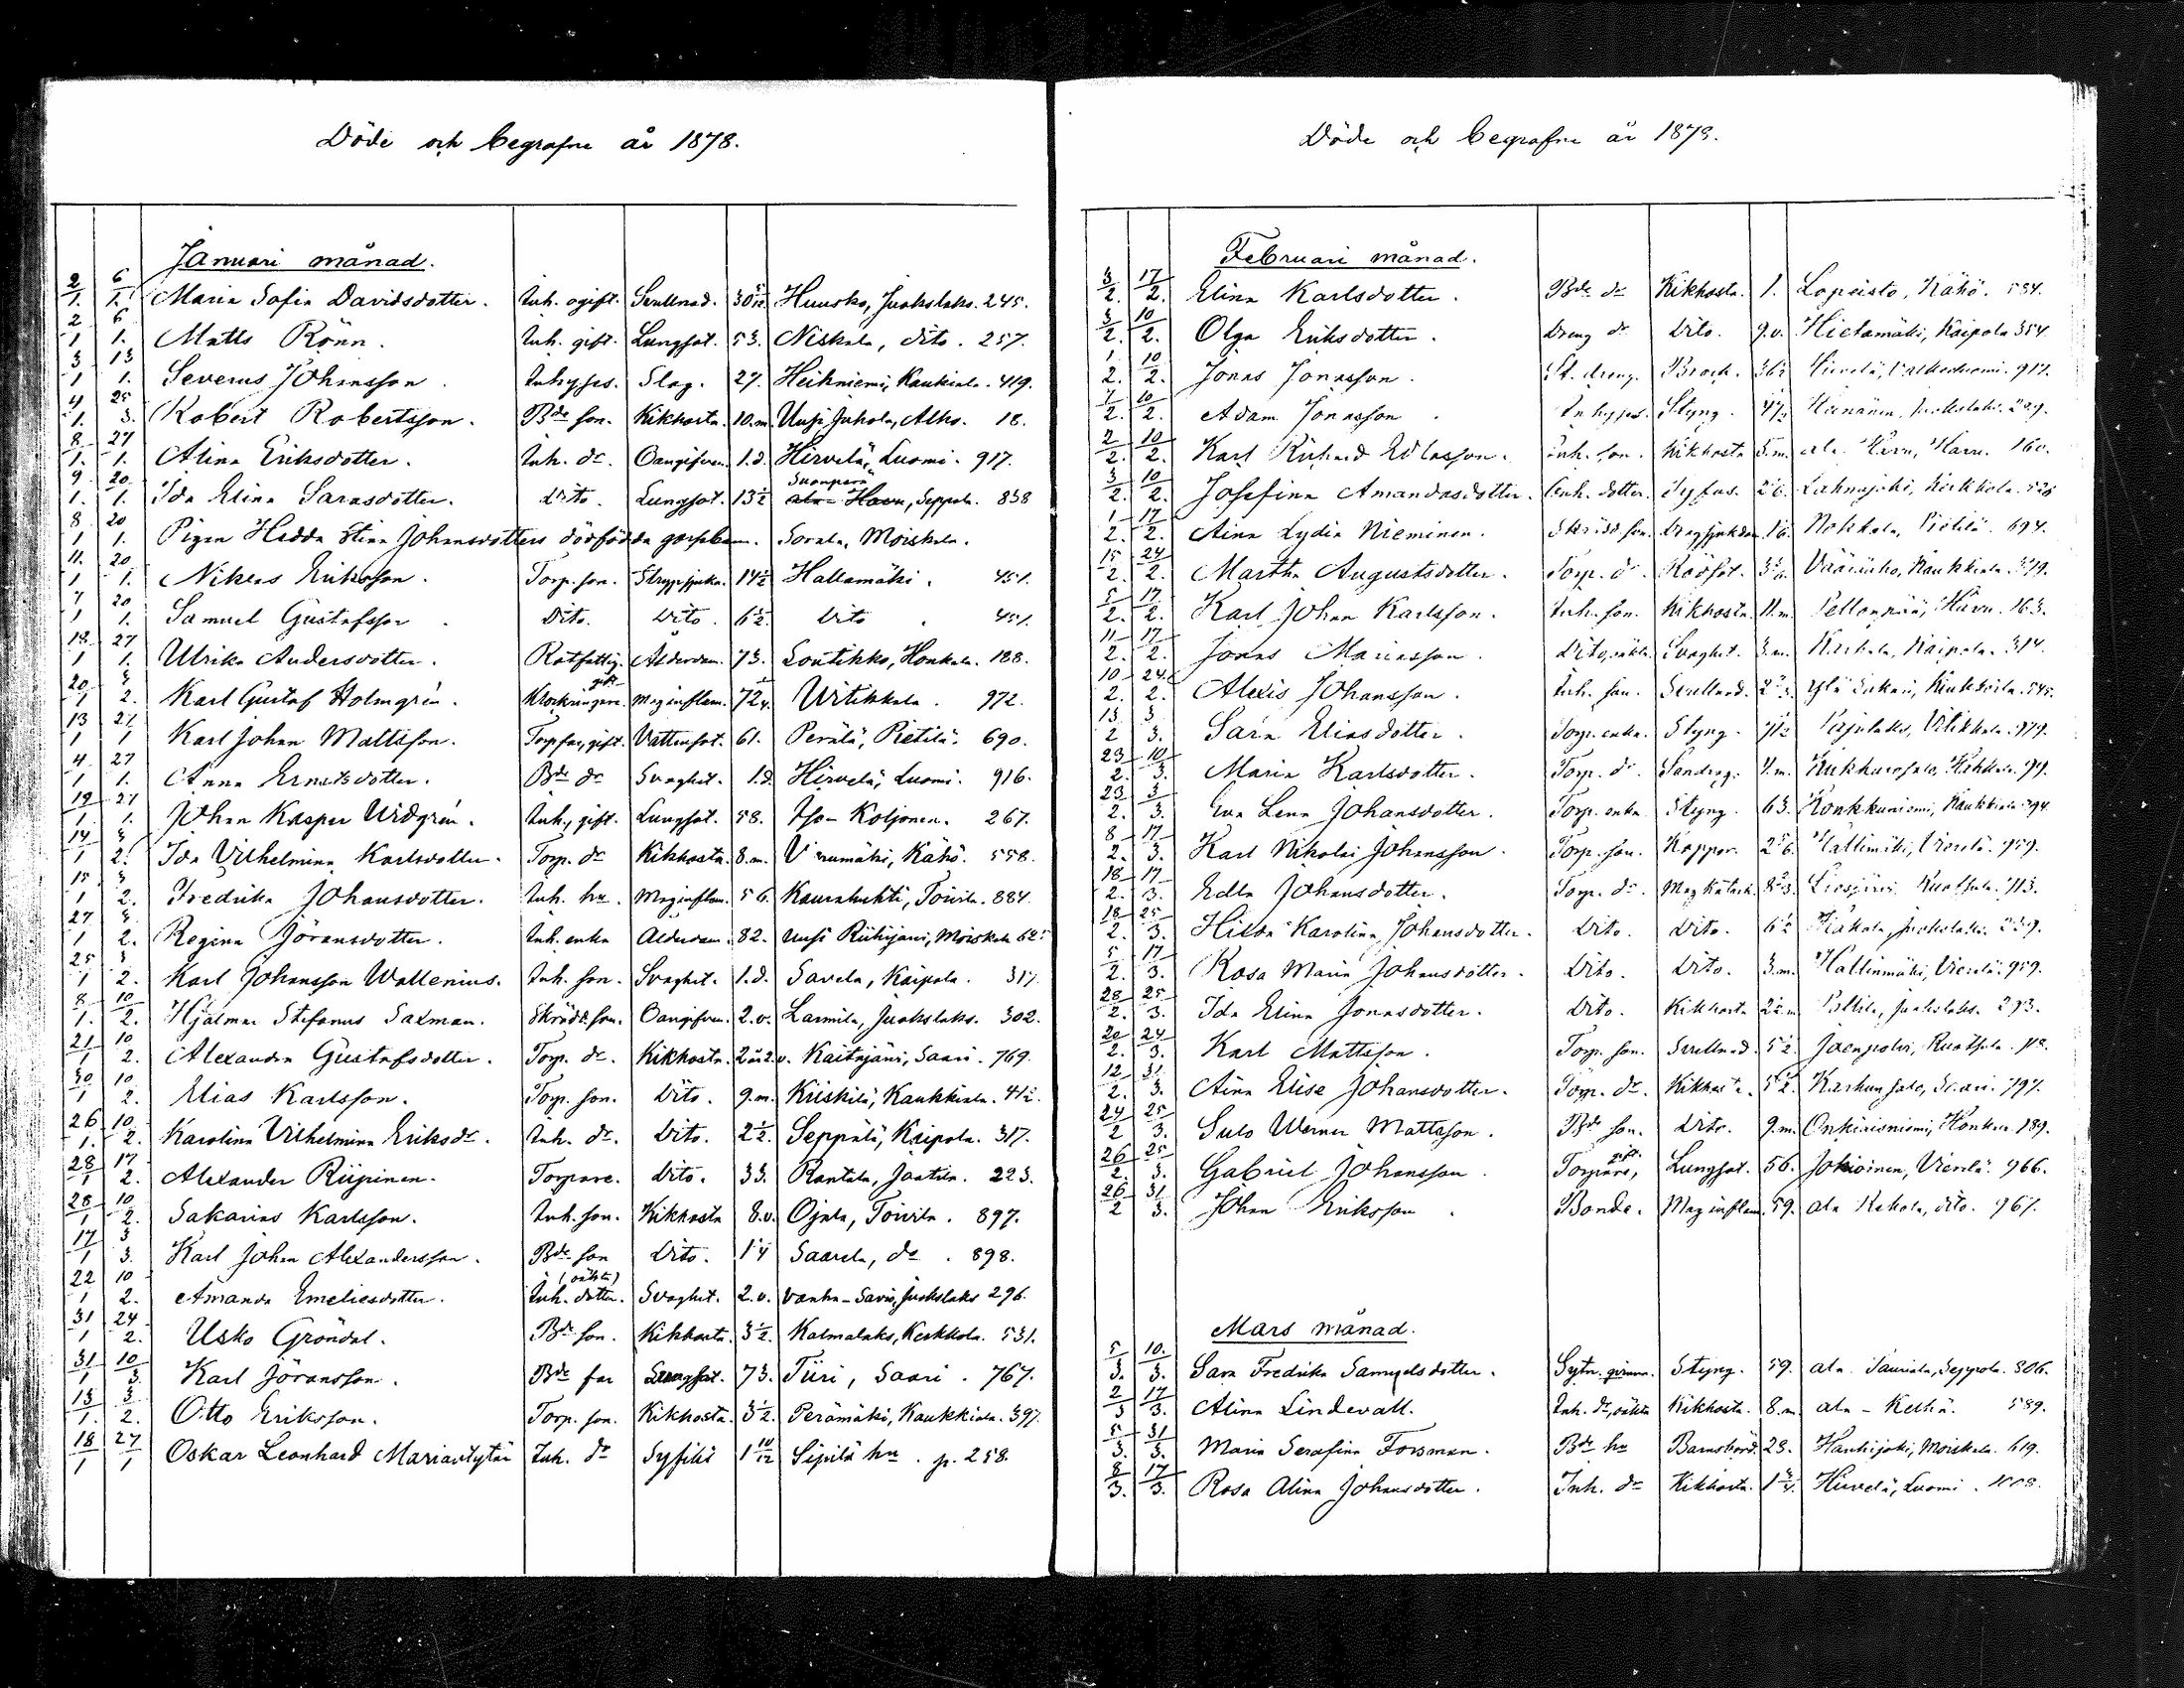 Döde och begrafne år 1878.
Januari månad.
2/1. 6/1. Maria Sofia Davidsdotter. Inh. ogift. Svullnad. 30 5/12 Huusko, Juokslaks. 245.
2/1 6/1. Matts Rönn. Inh. gift. Lungsot. 53. Niskala, dito. 257.
3/1 13/1. Severus Johansson. Inhyses. Slag. 27. Heihniemi, Kaukiala. 419.
4/1. 25/3. Robert Robertsson. Bde son. Kikhosta. 10.m. Uusi Juhola, Alho. 18.
8/1. 27/1. Alina Eriksdotter. Inh. dr. Oangifven. 1.d. Hirvelä, Luomi. 917.
9/1. 20/1. Ida Elina Sarasdotter. Dito. Lungsot. 13 1/2 Seppola. 838
8/1 20/1. Pigan Hedda Stina Johansdotters dödfödda gossebarn. Sorala, Moiskala.
11./1 20/1. Nikens Eriksson. Torp. son. Strypsjuka. 14 1/2 Hallamäki. 451.
7/1 20/1. Samuel Gustafsson. Dito. Dito. 6 1/2. Dito 451.
18/1 27/1. Ulrika Andersdotter. Rotfattig. Ålderdom. 73. Soutikko, Honkala. 188.
20/1 3/2. Karl Gustaf Holmgrén. Klockringare. gift Maginflam. Uitikkala. 972.
13/1 27/1 Karl Johan Mattsson. Torpfar, gift. Vattusot. 61. Perälä, Pietilä. 690.
4/1 27/1. Anna Ernstsdotter. Bde dr Svaghet. 1.d. Hirvelä, Luomi. 916.
19/1. 27/1. Johan Kasper Widgrén. Inh., gift. Lungsot. 58. Iso-Koljonen. 267.
14/1 3/2. Ida Vilhelmina Karlsdotter. Torp. dr Kikhosta. 8.m. Kähö. 558.
15/1 3/2. Fredrika Johansdotter. Inh. hu. Maginflam. 56. Kaurahuhti, Toivila. 884.
27/1 3/2. Regina Jöransdotter. Inh. enka Ålderdom. 82. Uusi Riihijärvi, Moiskala
25/1 3/2. Karl Johansson Wallenius. Inh. son. Svaghet. 1.d. Savela, Kaipola. 317.
8/1. 10/2. Hjalmar Stefanus Saxman. Skrädd. son. Oangifven. 2.v. Larmila, Juokslaks. 302.
21/1 10/2. Alexandra Gustafsdotter. Torp. dr. Kikhosta. 2 år 2.v. Kaitajärvi, Saari. 769.
30/1 10/2. Elias Karlsson. Torp. son. Dito. 9.m. Kriskilä, Kaukkiala. 412.
26/1. 10/2. Karolina Vilhelmina Eriksdr. Inh. dr. Dito. 2 1/2. Seppälä, Kaipola. 317.
28/1 17/2. Alexander Riipinen. Torpare. Dito. 33. Rantala, Jaatila. 223.
28/1 10/2. Sakarias Karlsson. Inh. son. Kikhosta 8.v. Ojala, Toivila. 897.
17/1 3/3. Karl Johan Alexandersson. Bde son Dito. 1 1/4 Saarela, do. 898.
22/1 10/2. Amanda Emeliesdotter. Inh. dotter. (oäkta) Svaghet. 2.v. Vanha-Savio, Juokslaks 296.
31/1 24/2. Usko Gröndal. Bde son. Kikhosta. 3 1/2. Kalmalaks, Kerkkola. 531.
31/1 10/3 Karl Jöransson. Bde far Lungsot. 73. Tiiri, Saari. 767.
13/1. 3/2. Otto Eriksson. Torp. son. Kikhosta. 3 1/2. Perämäki, Kaukkiala. 397.
18/1 27/1 Oskar Leonhard Mariantytär Inh. dr Syfilis 1 10/12 Sipilä hu. p. 258.
Döde och begrafne år 1878.
Februari månad.
3/2. 17/2. Elina Karlsdotter. Bde dr Kikhosta. 1. Lopeisto, Kähö. 554.
3/2. 10/2. Olga Eriksdotter. Dreng dr Dito. 9.v. Hietamäki, Kaipola 354.
1/2. 10/2. Jonas Jonasson. St. dreng. Bråck. 917.
7/2. 10/2. Adam Jonasson Inhyses. Styng. Juokslaks. 209.
2/2. 10/2. Karl Rikhard Edlasson. Inh. son. Kikhosta 5.m. ala Havu, Havu. 160.
3/2. 10/2. Josefina Amandasdotter. Inh. dotter. Syfilis. Lahnajoki, Kerkkola. 528
1/2. 17/2. Aina Lydia Nieminen. Nokkala, Pietilä. 694.
15/2. 24/2. Martha Augustsdotter. Torp. dr. Rödsot. Kaukkiala. 379.
5/2. 17/2. Karl Johan Karlsson. Inh. son. Kikhosta. 11.m. Pellonpää, Havu. 163.
11/2. 17/2. Jonas Mariasson. Dito, oäkta. Svaghet. 3.m. Karhola, Kaipola. 314.
10/2. 24/2. Alexis Johansson. Inh. son. Svullnad. 545.
13/2 3/3. Sara Eliasdotter. Torp. enka. Styng. Uitikkala. 979.
23/2. 10/3. Maria Karlsdotter. Torp. dr. 99.
23/2. 3/3. Eva Lena Johansdotter. Torp. enka Styng. 63. Ronkkuniemi, Kaukkiala 394.
8/2. 17/3. Karl Nikolai Johansson. Torp. son. Koppor. Hallimäki, Vierelä. 959.
18/2. 17/3. Edla Johansdotter. Torp. dr. Mag katarh. Ruotsula. 713.
18/2. 25/3. Hilda Karolina Johansdotter. Dito. Dito. 6 1/2 Käkola, Juokslaks. 259.
5/2. 17/3. Rosa Maria Johansdotter. Dito. Dito. 3.m. Hallinmäki, Vierelä. 959.
28/2. 25/3. Ida Elina Jonasdotter. Dito. Kikhosta Juokslaks. 293.
20/2. 24/3. Karl Mattsson. Torp. son. Svullnad. 5 1/2. Jäenpolvi, Ruotsula. 718.
12/2. 31/3. Aina Elise Johansdotter. Torp. dr. Kikhosta. Karhunsalo, Saari. 797.
24/2 25/3. Sulo Werner Mattsson. Bde son. Dito. 9.m. Onkiniemi, Honkala 189.
26/2. 25/3. Gabriel Johansson. Torpare, gift. Lungsot. 56. Jokioinen, Vierelä. 966.
26/2 31/3. Johan Eriksson. Bonde. Maginflam. 59. ala Kekola, dito. 967.
Mars månad.
5/3. 10./3. Sara Fredrika Samuelsdotter. Sytn. qvinna. Styng. 59. ala Tauriala, Seppola. 806.
2/3 17/3. Alina Lindevall. Inh. dr, oäkta Kikhosta. 8.m. ala- 589.
5/3. 31/3. Maria Serafina Forsman. Bde hu Barnsbörd. 28. Haukijoki, Moiskala. 619.
8/3. 17/3. Rosa Alina Johansdotter. Inh. dr Kikhosta. 1 3/4. Hirvelä, Luomi.